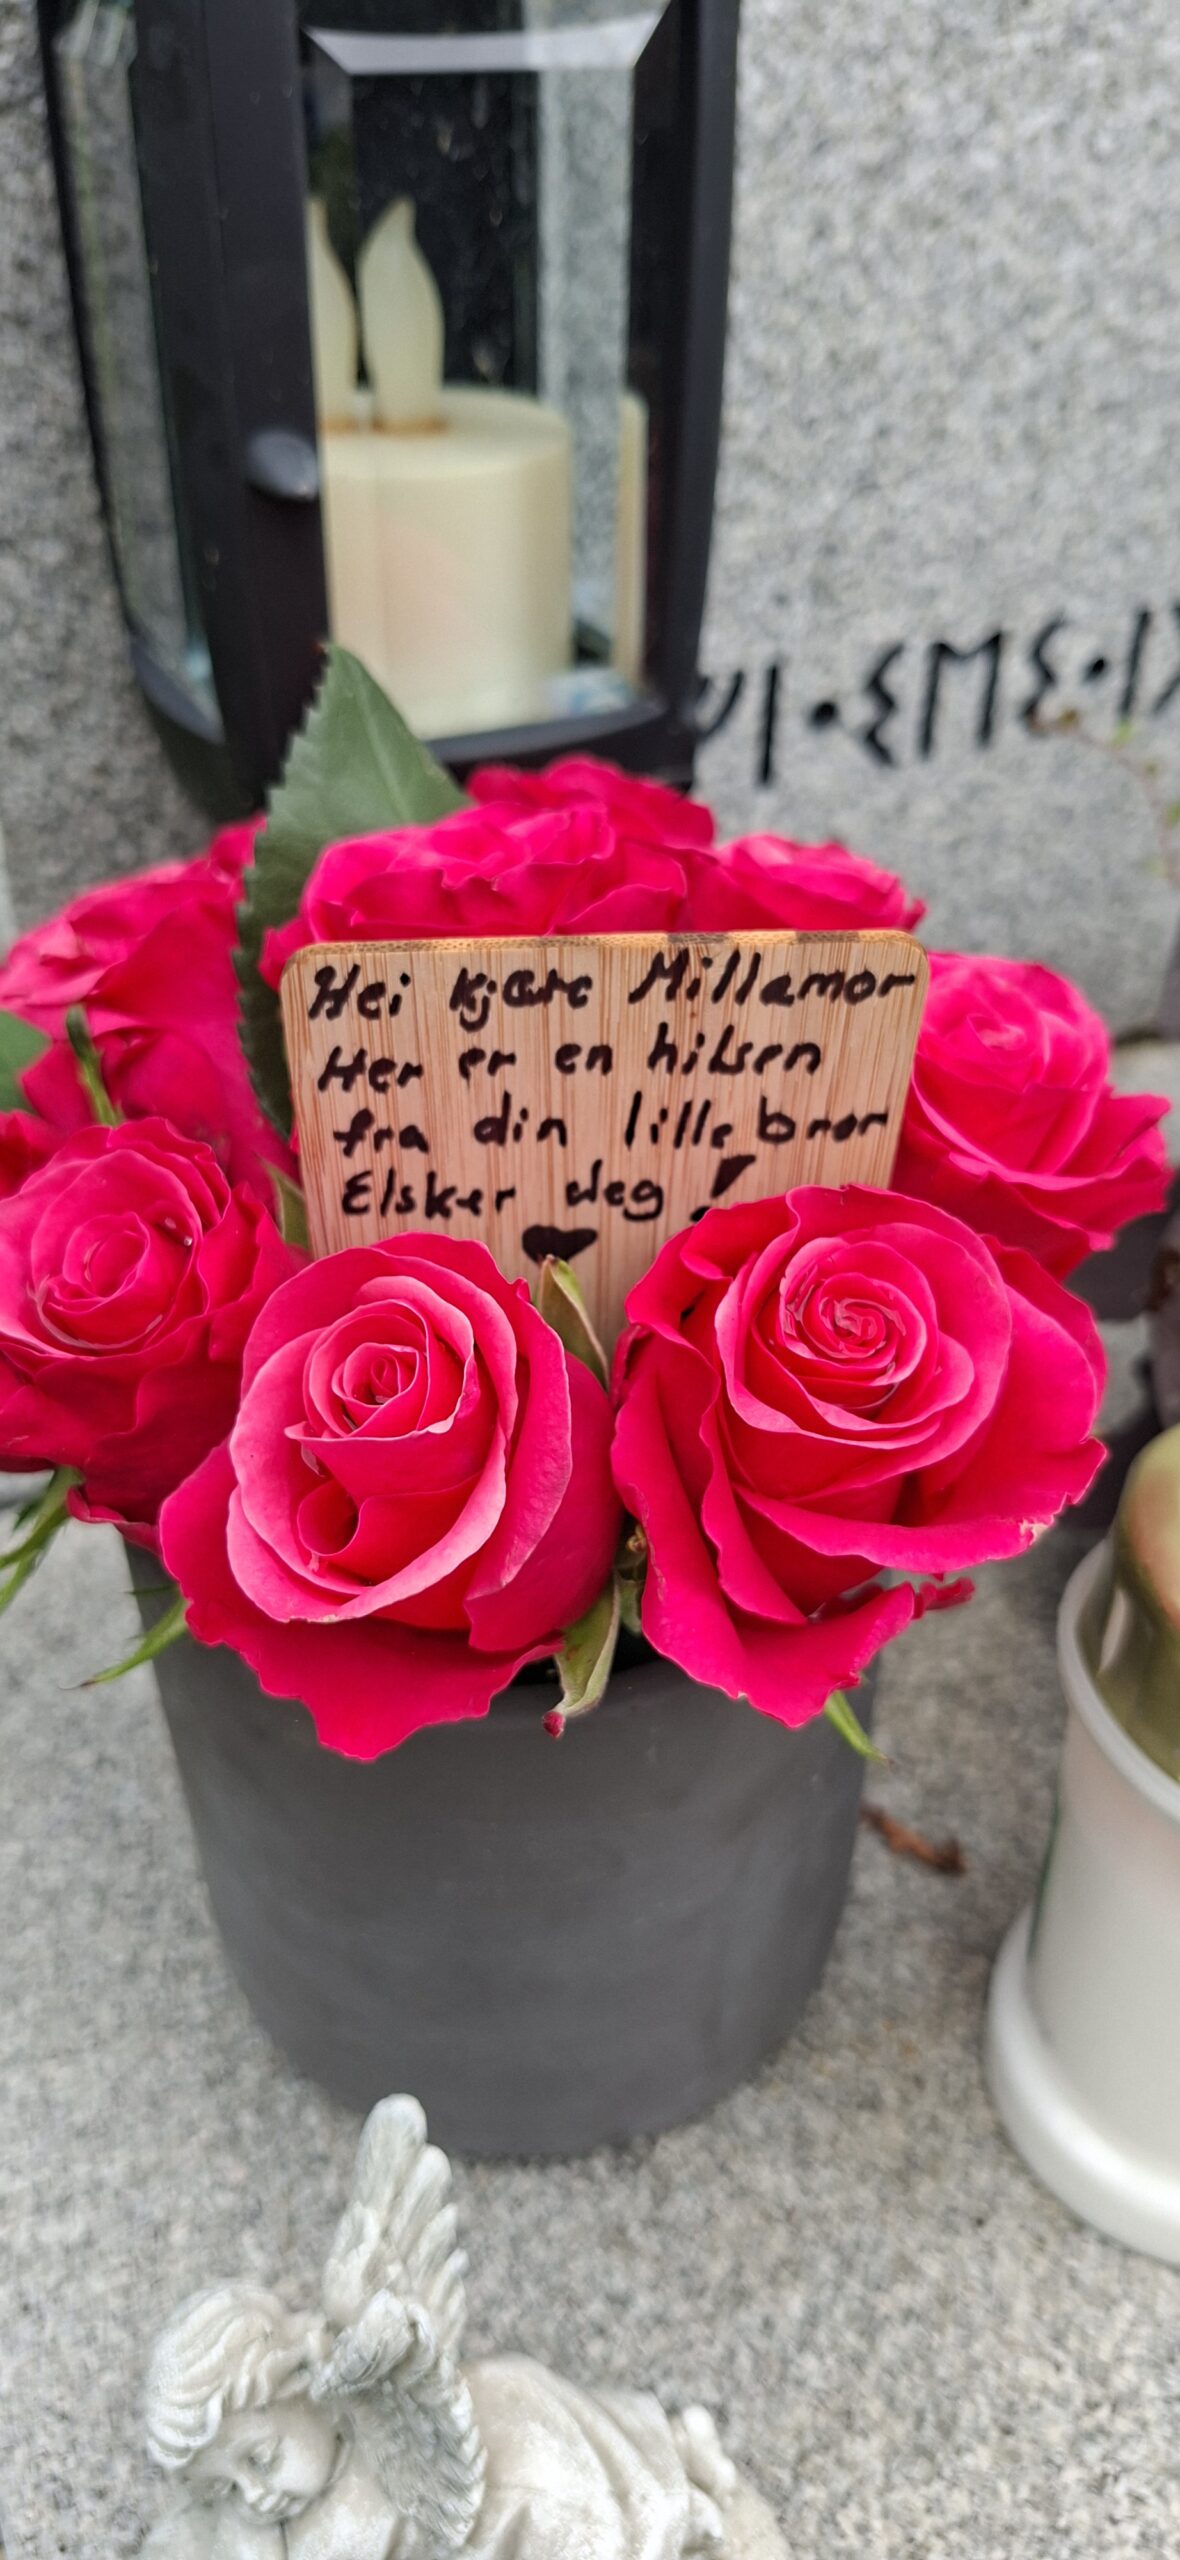 Hei kjære Millamor
Her er en hilsen
fra din lillebror
Elsker deg!